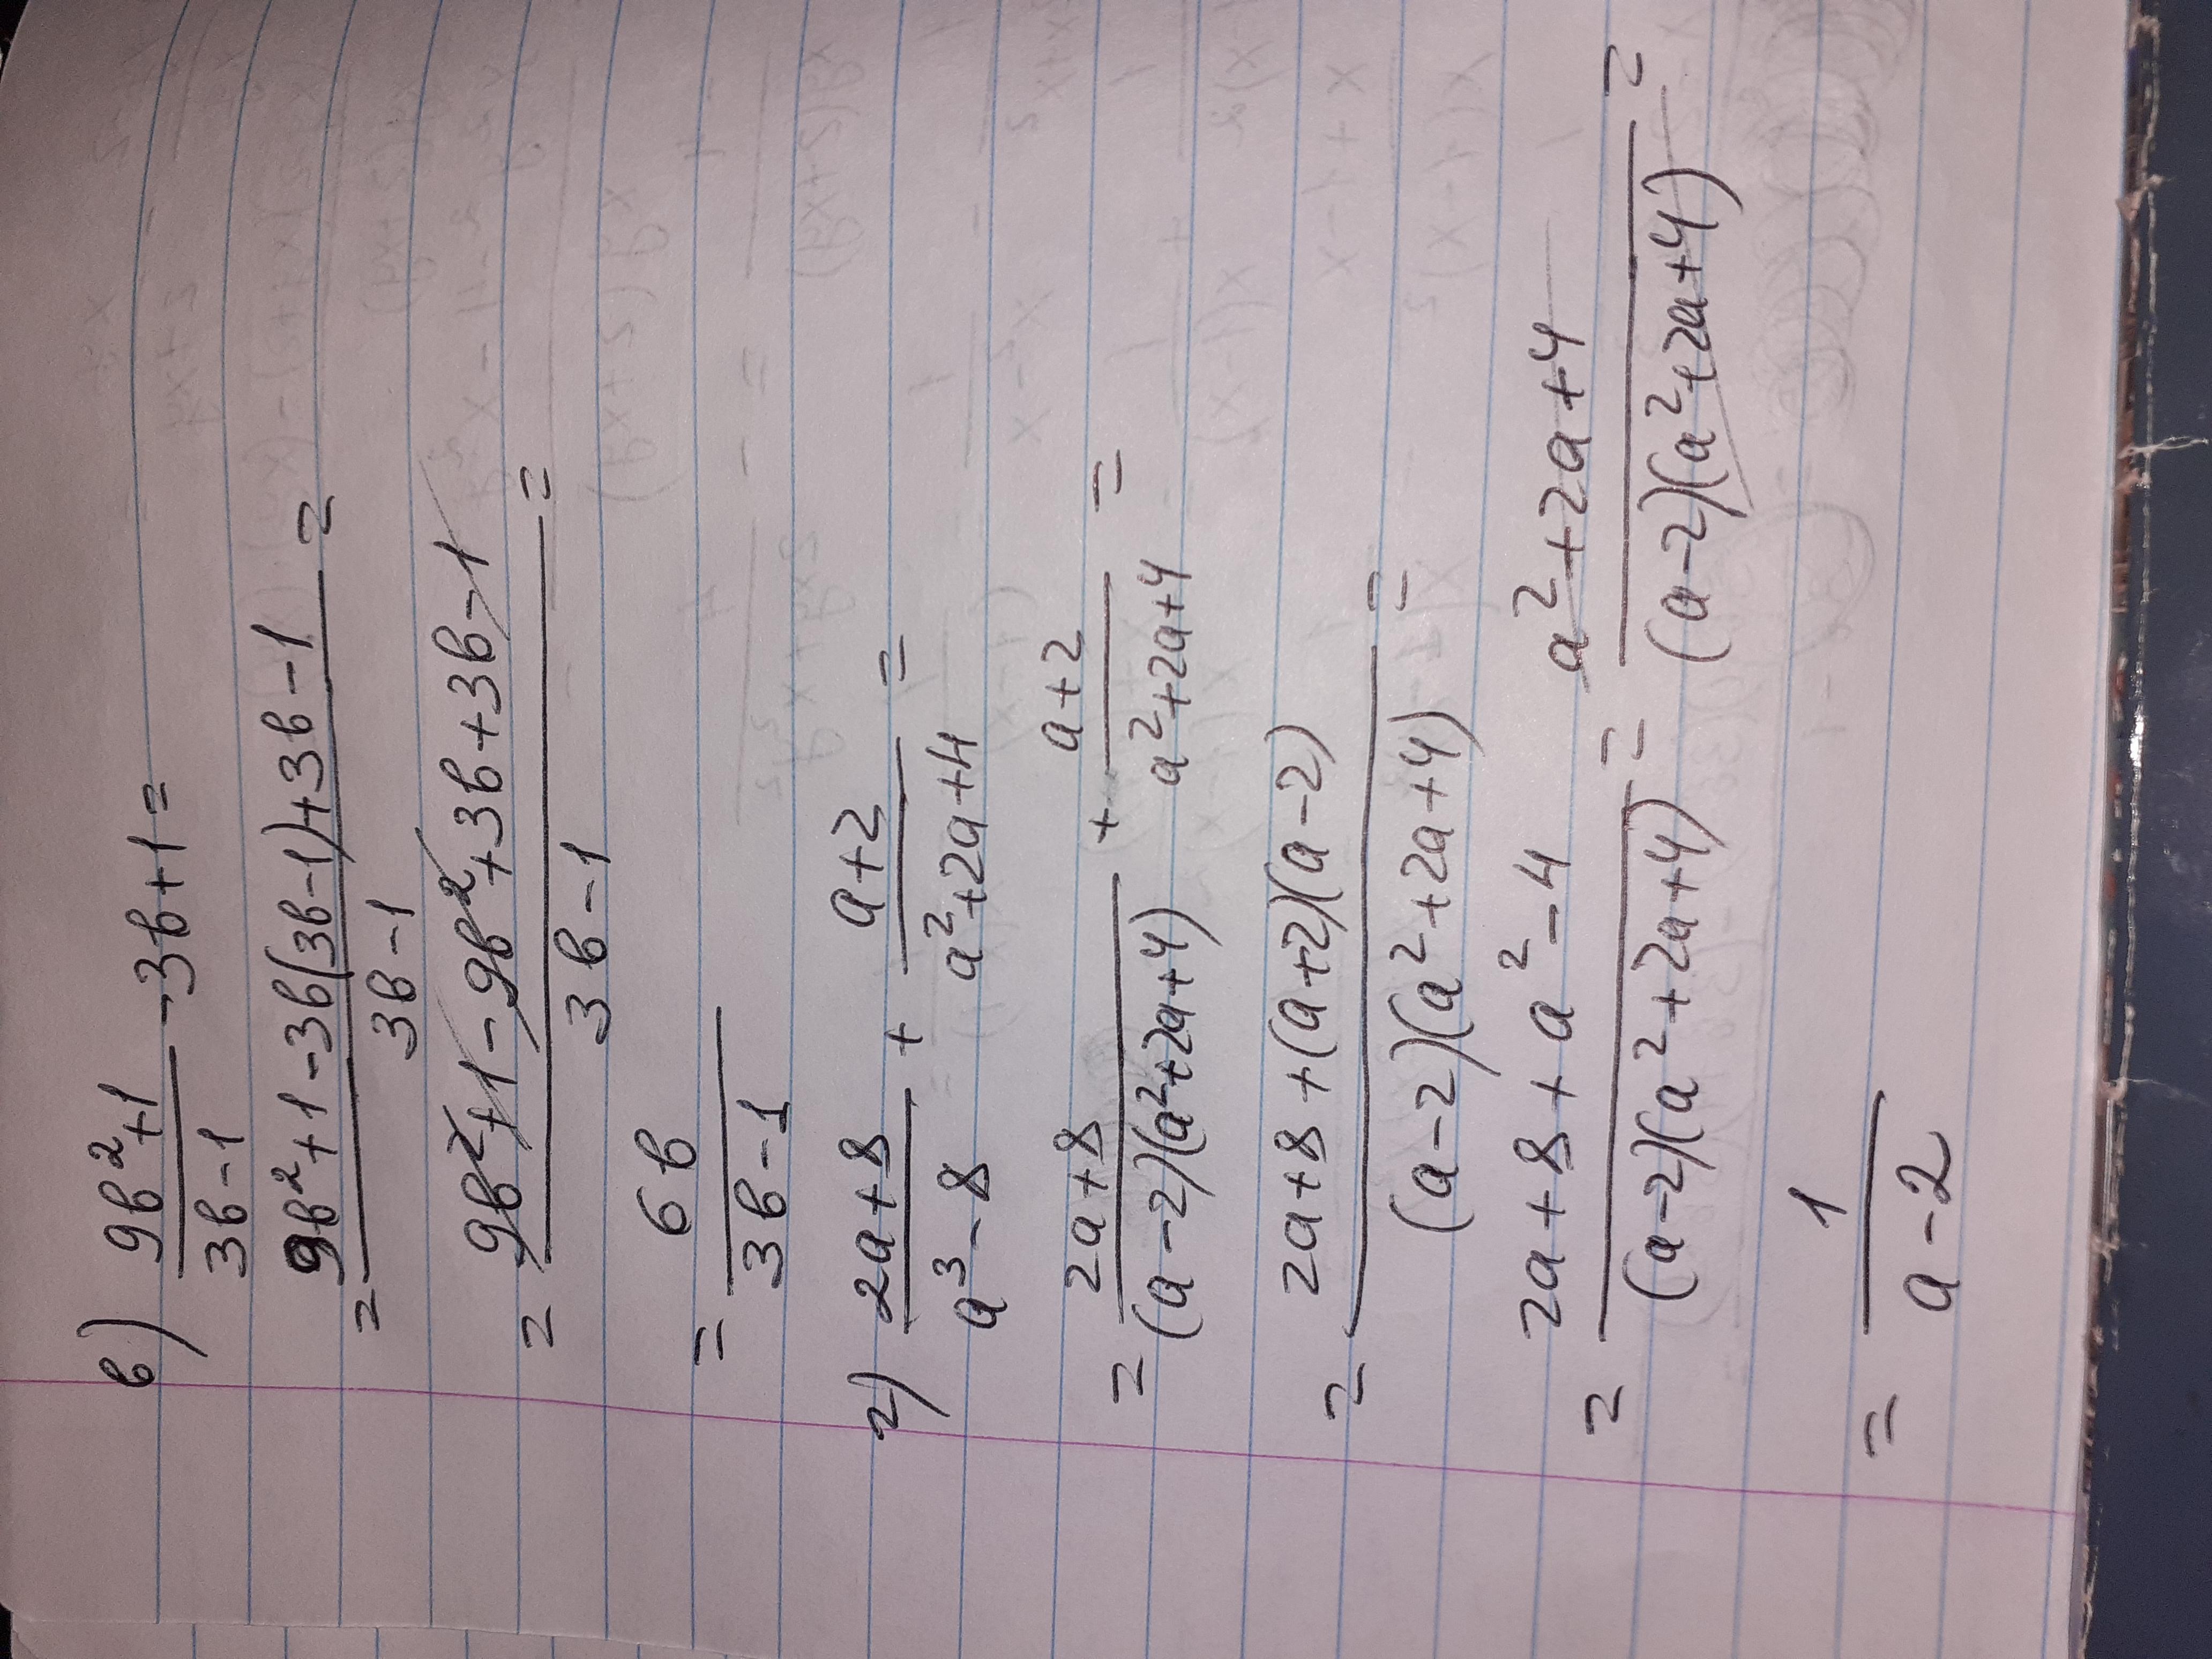 в) (9в²+1)/(3в-1) - 3в+1 =
= (9в²+1-3в(3в-1)+3в-1)/(3в-1) =
= (9в²+1-9в²+3в+3в-1)/(3в-1) =
= 6в/(3в-1)
г) (2a+8)/(a³-8) + (a+2)/(a²+2a+4) =
= (2a+8)/((a-2)(a²+2a+4)) + (a+2)/(a²+2a+4) =
= (2a+8+(a+2)(a-2))/((a-2)(a²+2a+4)) =
= (2a+8+a²-4)/((a-2)(a²+2a+4)) = (a²+2a+4)/((a-2)(a²+2a+4)) =
= 1/(a-2)